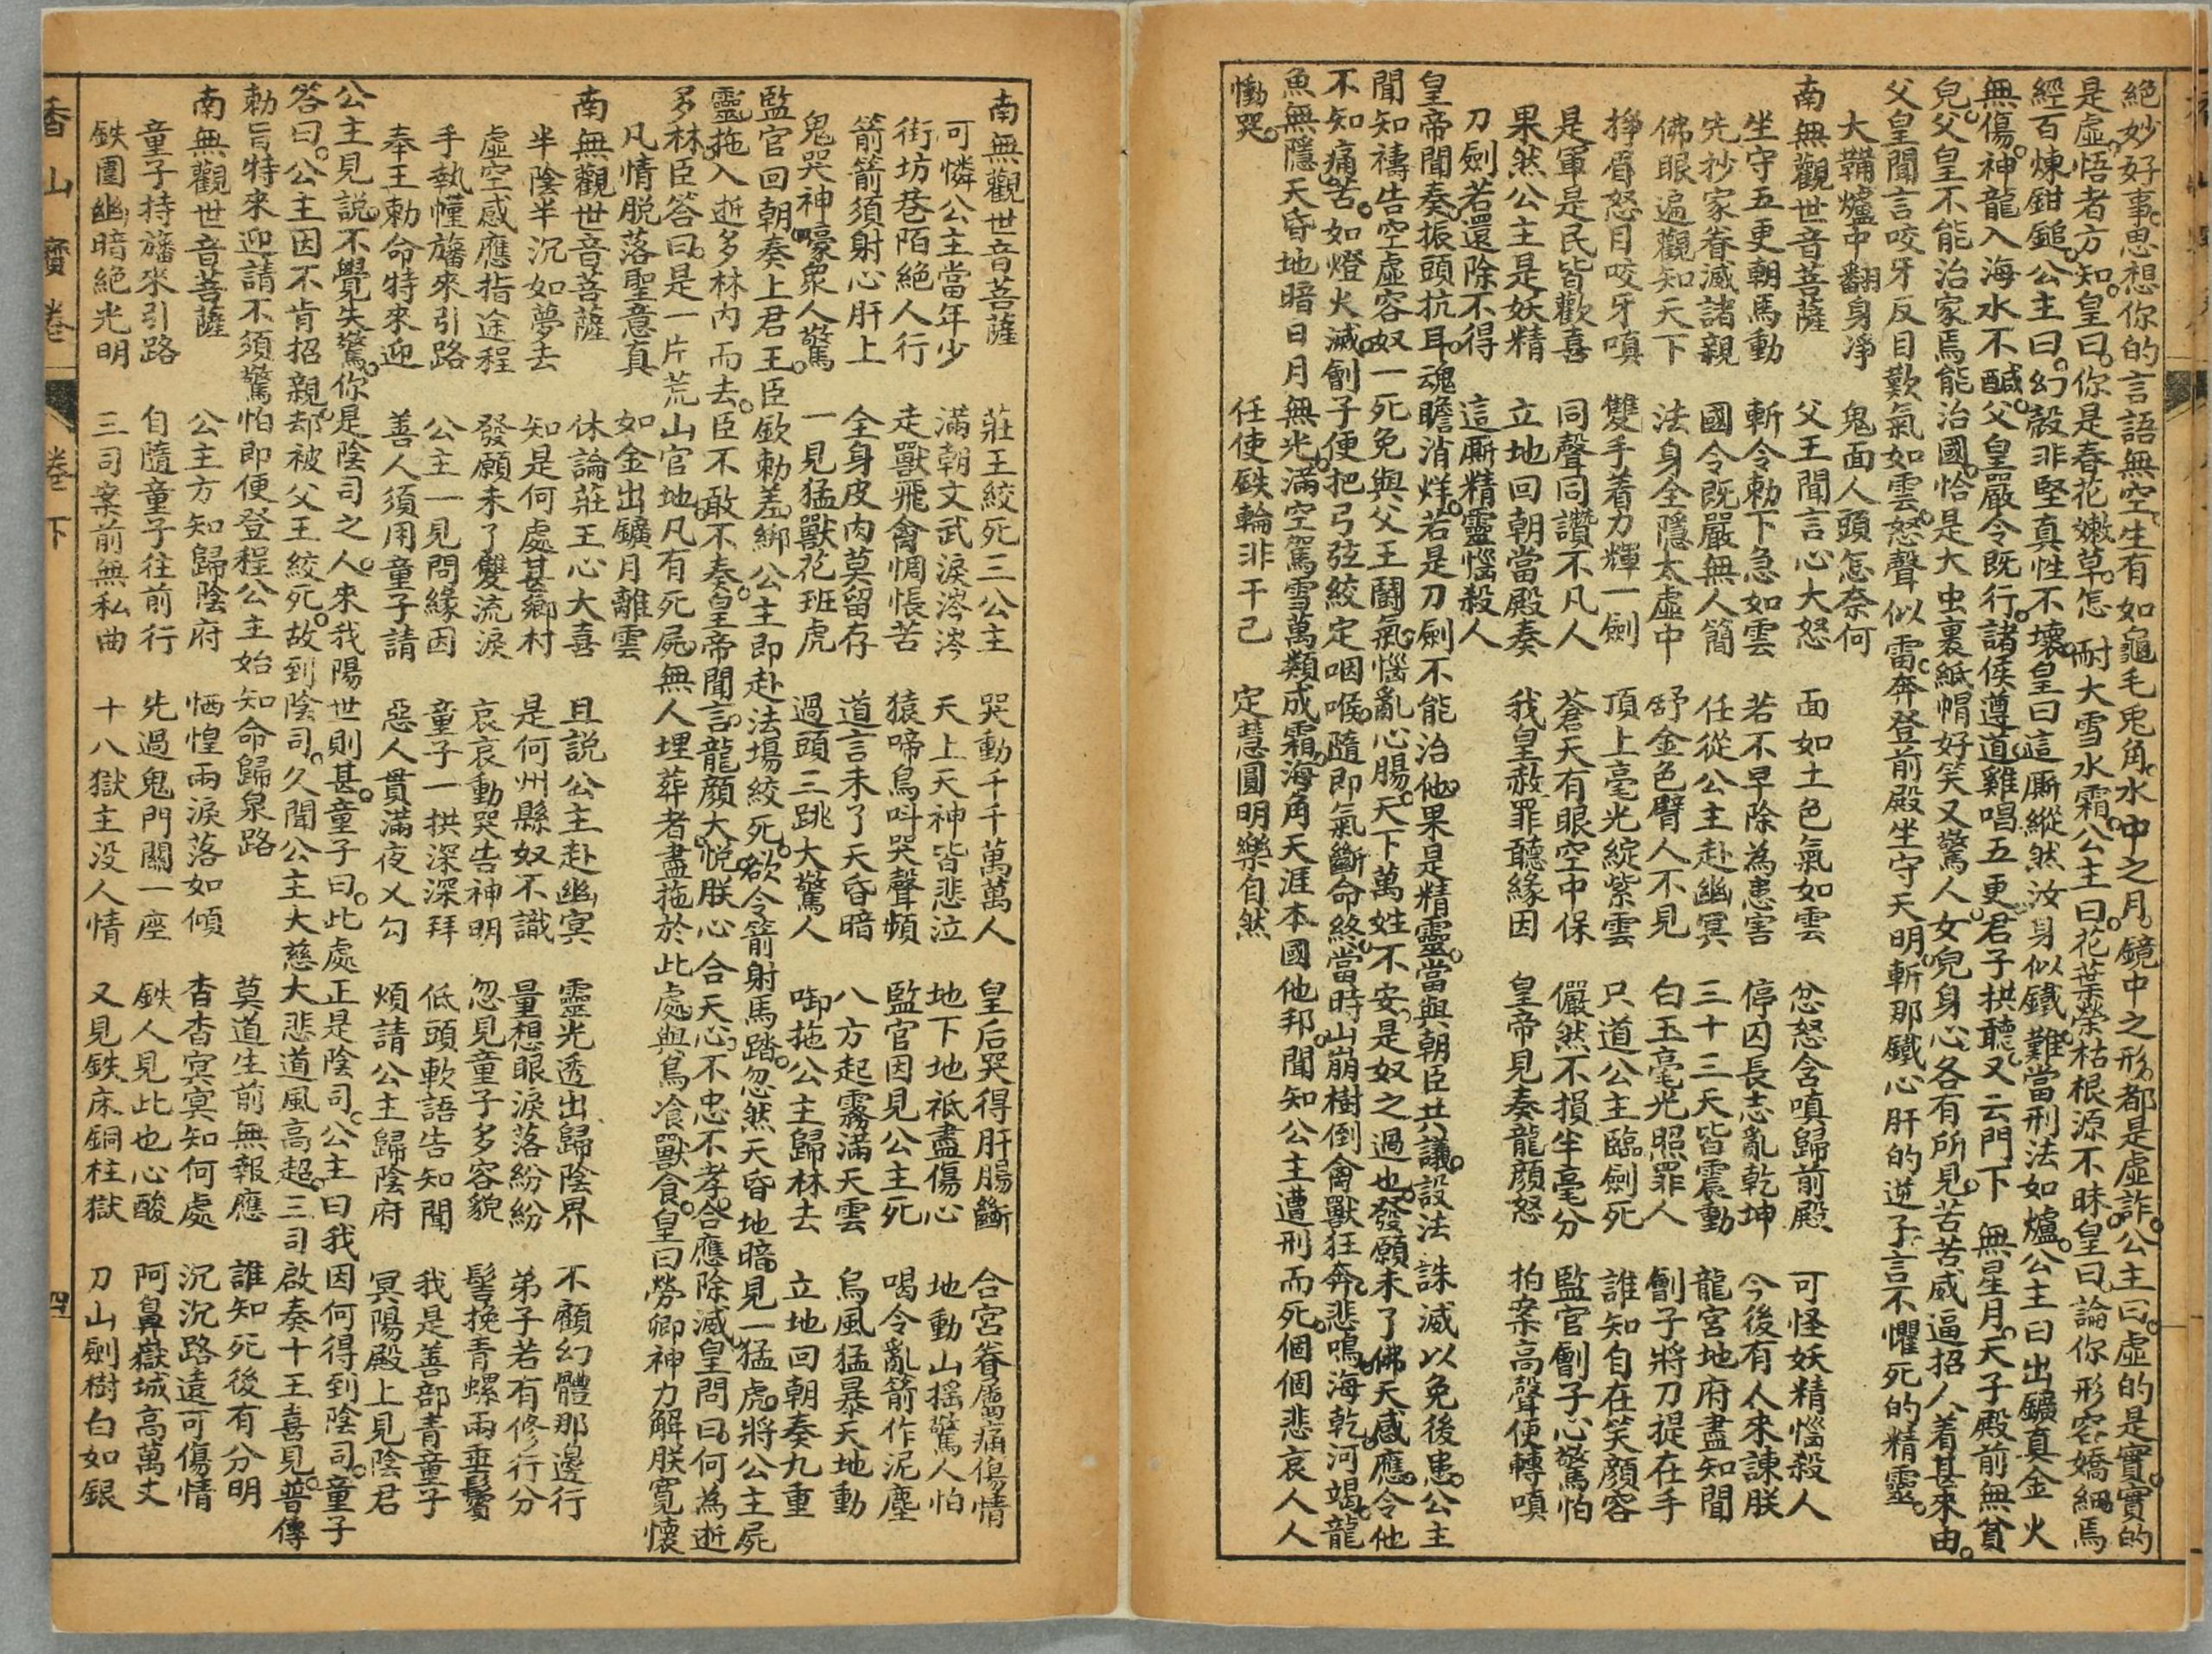 絕妙好事。思想你的言語無空。生有如龜毛兎角。水中之月。鏡中之形。都是虛詐。公主曰。虛的是實。實的
是虛。悟者方知。皇曰。你是春花嫩草。怎耐大雪水霜。公主曰。花葉榮枯根源不昧。皇曰論你形容嬌細。焉
經百煉鉗鎚。公主曰。幻殼非堅真性不壞。皇曰這厮縱然汝身似鐵。難當刑法如爐。公主曰出鑛真金火
無傷。神龍入海水不鹹。父皇嚴令既行。諸侯遵道。雞唱五更。君子拱聽。又云門下無星月。天子殿前無貧
兒。父皇不能治家焉能治國。恰是大虫裏紙帽好笑又驚人。女兒身心各有所見。苦苦威逼招人着甚來由。
父皇聞言咬牙反目歎氣如雲。怒聲似雷。奔登前殿坐守天明。斬那鐵心肝的逆子。言不懼死的精靈。
大鞴爐中翻身凈　鬼面人頭怎奈何
南無觀世音菩薩　父王聞言心大怒　面如土色氣如雲　忿怒含嗔歸前殿　可怪妖精惱殺人
坐守五更朝馬動　斬令勅下急如雲　若不早除為患害　停囚長志亂乾坤　今後有人來諫朕
先抄家眷滅諸親　國令既嚴無人簡　任從公主赴幽冥　三十三天皆震動　龍宮地府盡知聞
佛眼遍觀知天下　法身全隱太虛中　舒金色臂人不見　白玉毫光照罪人　劊子將刀提在手
掙眉怒目咬牙嗔　雙手着力輝一劍　頂上毫光綻紫雲　只道公主臨劍死　誰知自在笑顏容
是軍是民皆歡喜　同聲同讚不凡人　蒼天有眼空中保　儼然不損半毫分　監官劊子心驚怕
果然公主是妖精　立地回朝當殿奏　我皇赦罪聽緣因　皇帝見奏龍顏怒　拍案高聲便轉嗔
刀劍若還除不得　這厮精靈惱殺人
皇帝聞奏。振頭抗耳。魂瞻消烊。若是刀劍不能治他。果是精靈。當與朝臣共議。設法誅滅以免後患。公主
聞知禱告空虛容奴一死免與父王鬪氣。惱亂心腸。天下萬姓不安。是奴之過也。發願未了。佛天感應。令他
不知痛苦。如燈火滅。劊子便把弓弦絞定咽喉。隨即氣斷命終。當時山崩樹倒禽獸狂奔。悲鳴海乾河竭。龍
魚無隱。天昏地暗日月無光。滿空駕雪。萬類成霜。海角天涯本國他邦。聞知公主遭刑而死。個個悲哀人人
慟哭。　任使鉄輪非干己　定慧圓明樂自然
南無觀世音菩薩　莊王絞死三公主　哭動千千萬萬人　皇后哭得肝腸斷　合宮眷屬痛傷情
可憐公主當年少　滿朝文武淚涔涔　天上天神皆悲泣　地下地祇盡傷心　地動山搖驚人怕
街坊巷陌絕人行　走獸飛禽惆悵苦　猿啼鳥呌哭聲頻　監官因見公主死　喝令亂箭作泥塵
箭箭須射心肝上　全身皮肉莫留存　道言未了天昏暗　八方起霧滿天雲　烏風猛暴天地動
鬼哭神嚎衆人驚　一見猛獸花班虎　過頭三跳大驚人　啣拖公主歸林去　立地回朝奏九重
監官回朝。奏上君王。臣欽勅差。綁公主即赴法場絞死。欲令箭射馬踏。忽然天昏地暗。見一猛虎。將公主屍
靈拖入逝多林內而去。臣不敢不奏。皇帝聞言。龍顏大悅。朕心合天心。不忠不孝。合應除滅。皇問曰。何為逝
多林。臣答曰。是一片荒山官地。凡有死屍。無人埋葬者。盡拖於此處。與鳥飡獸食。皇曰勞卿神力解朕寬懷
凡情脫落聖意真　如金出鑛月離雲
南無觀世音菩薩　休論莊王心大喜　且説公主赴幽冥　靈光透出歸陰界　不顧幻體那邊行
半陰半沉如夢去　知是何處甚鄉村　是何州縣奴不識　量想眼淚落紛紛　弟子若有修行分
虛空感應指途程　發願未了雙流淚　哀哀動哭告神明　忽見童子多容貌　髻挽青螺兩垂鬢
手執幢旛來引路　公主一見問緣因　童子一拱深深拜　低頭軟語告知聞　我是善部青童子
奉王勅命特來迎　善人須用童子請　惡人貫滿夜乂勾　煩請公主歸陰府　冥陽殿上見陰君
公主見説。不覺失驚。你是陰司之人。來我陽世則甚。童子曰。此處正是陰司。公主曰我因何得到陰司。童子
答曰。公主因不肯招親。却被父王絞死。故到陰司。久聞公主大慈大悲道風高超。三司啟奏十王喜見。普傳
勅旨特來迎請不須驚怕即便登程公主始知命歸泉路　莫道生前無報應　誰知死後有分明
南無觀世音菩薩　公主方知歸陰府　恓惶兩淚落如傾　杳杳冥冥知何處　沉沉路遠可傷情
童子持旛來引路　自隨童子往前行　先過鬼門關一座　鉄人見此也心酸　阿鼻嶽城高萬丈
鉄圍幽暗絕光明　三司案前無私曲　十八獄主沒人情　又見鉄床銅柱獄　刀山劍樹白如銀
香山寶卷　卷下　四